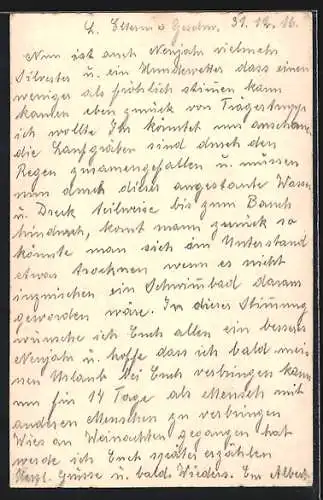 L. Eltern u Geschw. 31.12.16.
Nun ist auch Neujahr vielmehr
Silvester u. ein Hundewetter dass einen
weniger als fröhlich stimen kann
kamen eben zurück von
ich wollte Ihr könntet uns anschauen
die Laufgräben sind durch den
Regen zusamengefallen u. müssen
nun durch dieses angestaute Wasser
u. Dreck teilweise bis zum Bauch
hindurch, komt man zurück so
könnte man sich im Unterstand
etwas trocknen wenn es nicht
inzwischen ein Schwimbad daraus
geworden wäre. In dieser Stimung
wünsche ich Euch allen ein besseres
Neujahr u. hoffe dass ich bald mei-
nen Urlaub bei Euch verbringen kann
um für 14 Tage als Mensch mit
anderen Menschen zu verbringen
Wies an Weinachten gegangen hat
werde ich Euch später erzählen
Herzl. Grüsse u. bald. Wieders. Eu Albert